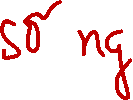 số ng